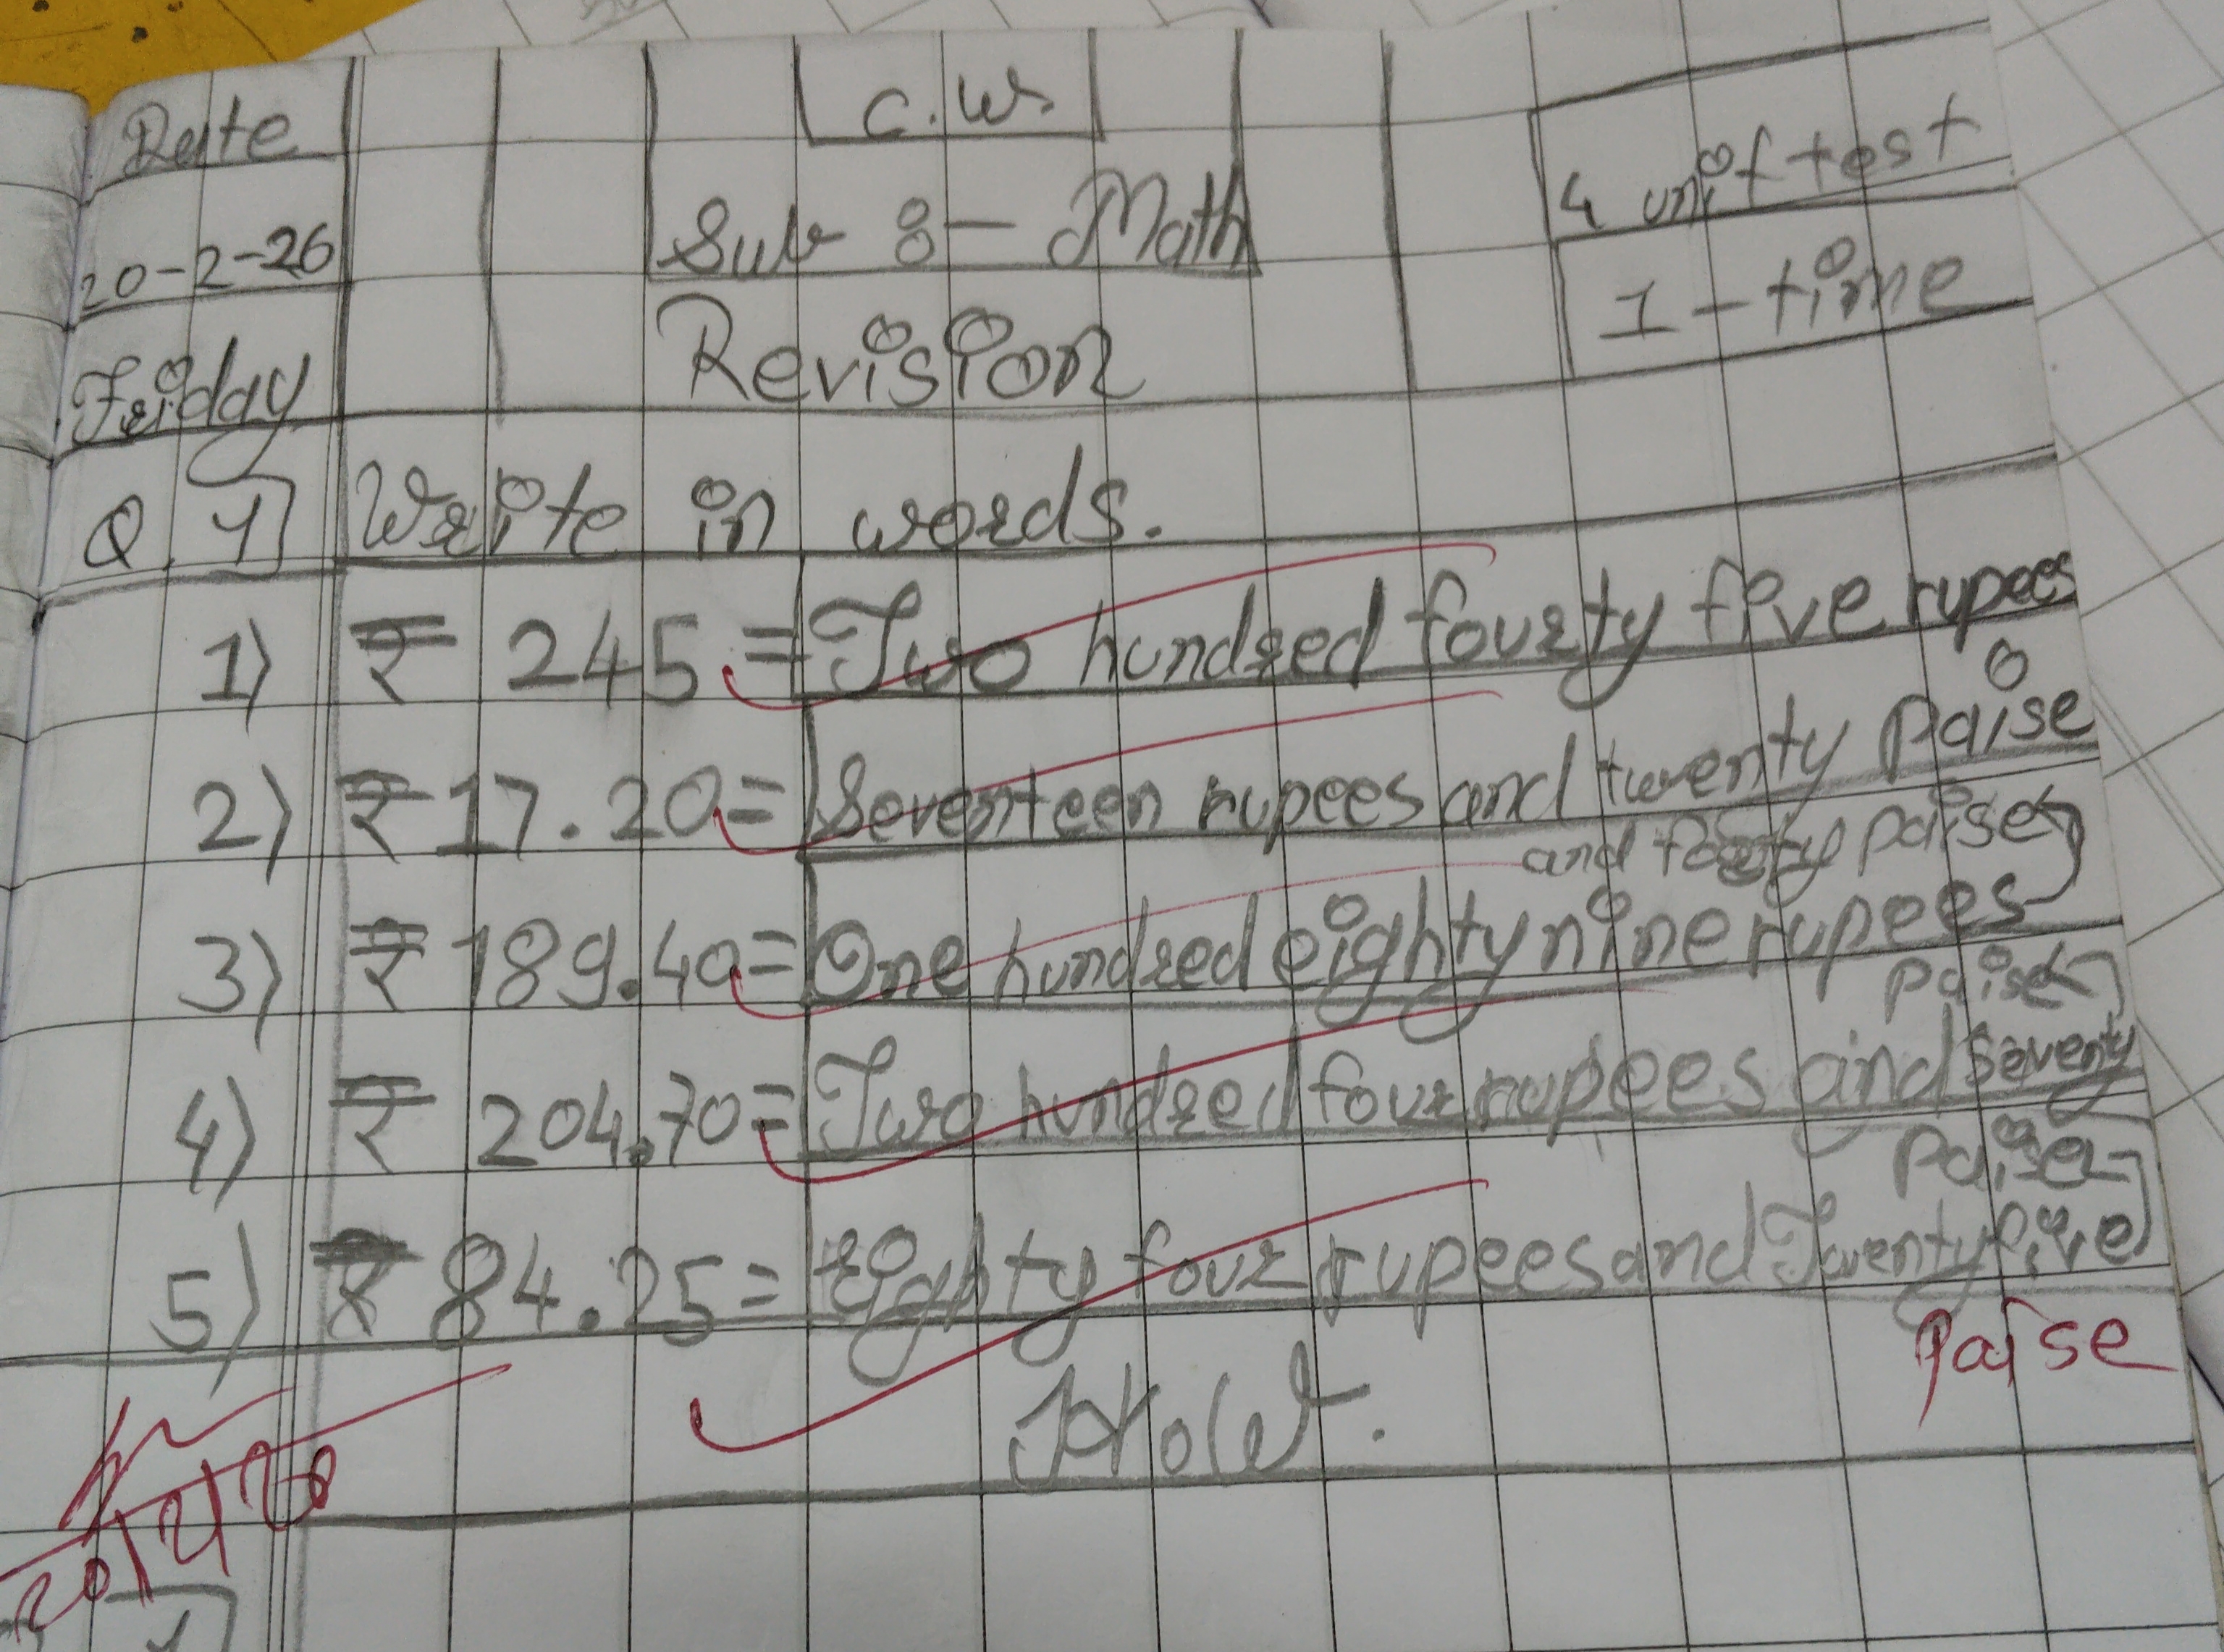 Date
C.W.
20-2-26
Sub :- Math
4 unit test
Friday
Revision
1-time
Q.1] Write in words.
1) ₹ 245 = Two hundred fourty five rupees
2) ₹ 17.20 = Seventeen rupees and twenty paise
and fourty paise
3) ₹ 189.40 = One hundred eighty nine rupees
paise
4) ₹ 204.70 = Two hundred four rupees and seventy
paise
5) ₹ 84.25 = Eighty four rupees and Twenty five
paise
H.W.
20/2/26